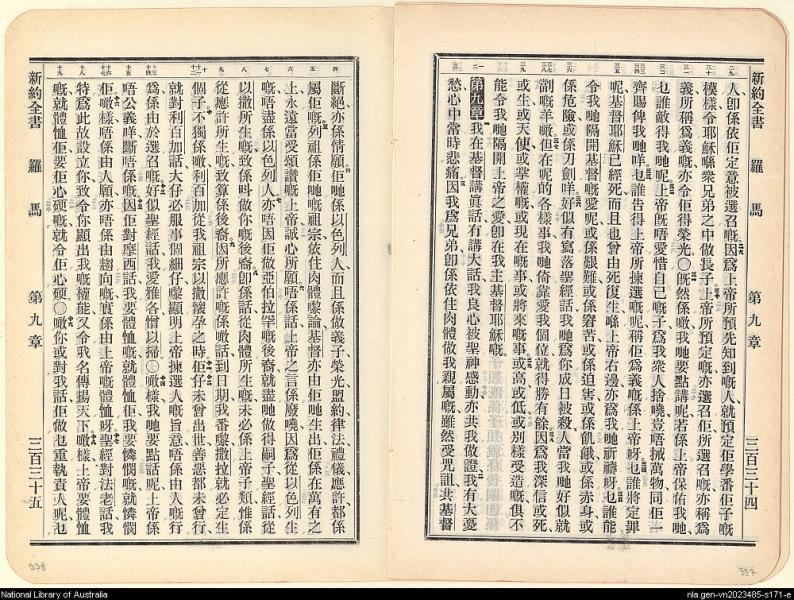 新約全書 羅馬 第九章 三百三十四
人卽係依佢定意被選召嘅因爲上帝所預先知到嘅人就預定佢學番佢子嘅
模樣令耶穌喺衆兄弟之中做長子上帝所預定嘅亦選召佢所選召嘅亦稱爲
義所稱爲義嘅亦令佢得榮光〇旣然係噉我哋要點講呢若係上帝保佑我哋
乜誰敵得我哋呢上帝旣唔愛惜自己嘅子爲我衆人捨曉豈唔㨢萬物同佢一
齊賜俾我哋咩乜誰告得上帝所揀選嘅呢稱佢爲義嘅係上帝呀乜誰將定罪
呢基督耶穌已經死而且也曾由死復生喺上帝右邊亦爲我哋祈禱呀乜誰能
令我哋隔開基督嘅愛呢或係艱難或係窘苦或係迫害或係飢餓或係赤身或
係危險或係刀劍咩好似有寫落聖經話我哋爲你成日被殺人當我哋好似就
劏嘅羊噉但在呢的各樣事我哋倚靠愛我個位就得勝有餘因爲我深信或死
或生或天使或掌權嘅或現在嘅事或將來嘅事或高或低或別樣受造嘅俱不
能令我哋隔開上帝之愛卽在我主基督耶穌嘅
第九章 我在基督講眞話冇講大話我良心被聖神感動亦共我做證我有大憂
愁心中常時悲痛因我爲兄弟卽係依住肉體做我親屬嘅雖然受咒詛共基督
斷絕亦係情願佢哋係以色列人而且係做義子榮光盟約律法禮儀應許都係
屬佢嘅列祖係佢哋嘅祖宗依住肉體嚟論基督亦由佢哋生出佢係在萬有之
上永遠當受頌讚嘅上帝誠心所願唔係話上帝之言係廢曉因爲從以色列生
嘅唔盡係以色列人亦唔因佢做亞伯拉罕嘅後裔就盡哋做得嗣子聖經話從
以撒所生嘅致係叫做你嘅後裔卽係話從肉體所生嘅未必係上帝子類惟係
從應許所生嘅致算係後裔因所應許嘅係噉話到日期我番嚟撒拉就必定生
個子不獨係噉利百加從我祖宗以撒懷孕之時佢仔未曾出世善惡都未曾行
就對利百加話大仔必服事個細仔嚟顯明上帝揀選人嘅旨意唔係由人嘅行
爲係由於選召嘅好似聖經話我愛雅各憎以掃〇噉樣我哋要點話呢上帝係
唔公義咩斷唔係嘅因佢對摩西話我要體恤嘅就體恤佢我要憐憫嘅就憐憫
佢噉樣唔係由人願亦唔係由趨向嘅實係由上帝嘅體恤呀聖經對法老話我
特爲此故設立你致令你顯出我嘅權能又令我名傳揚天下噉樣上帝要體恤
嘅就體恤佢要佢心硬嘅就令佢心硬〇噉你或對我話佢做乜重執責人呢乜
新約全書 羅馬 第九章 三百三十五
338
337
National Library of Australia
nla.gen-vn2023485-s171-e